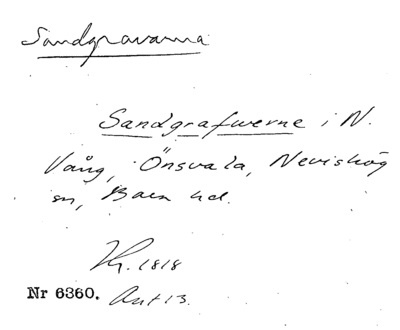 Sandgravarna
Sandgrafwerne i N.
Vång, Önsvala, Nevishög
sn, Bara hd.
Kr. 1818
Nr 6360. Ant 13.